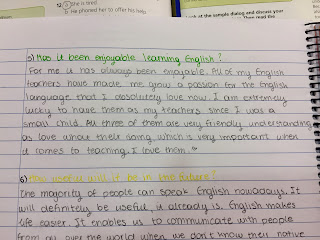 b He phoned her to offer his help
look at the sample dialog and discuss your
5) Has it been enjoyable learning English?
For me it has always been enjoyable. All of my English
teachers have made me grow a passion for the English
language that I absolutely love now. I am extremely
lucky to have them as my teachers since I was a
small child. All three of them are very friendly, understanding
as love about their doing which is very important when
it comes to teaching. I love them.
6) How useful will it be in the future?
The majority of people can speak English nowadays. It
will definitely be useful, it already is. English makes
life easier. It enables us to communicate with people
from all over the world when we don't know their native